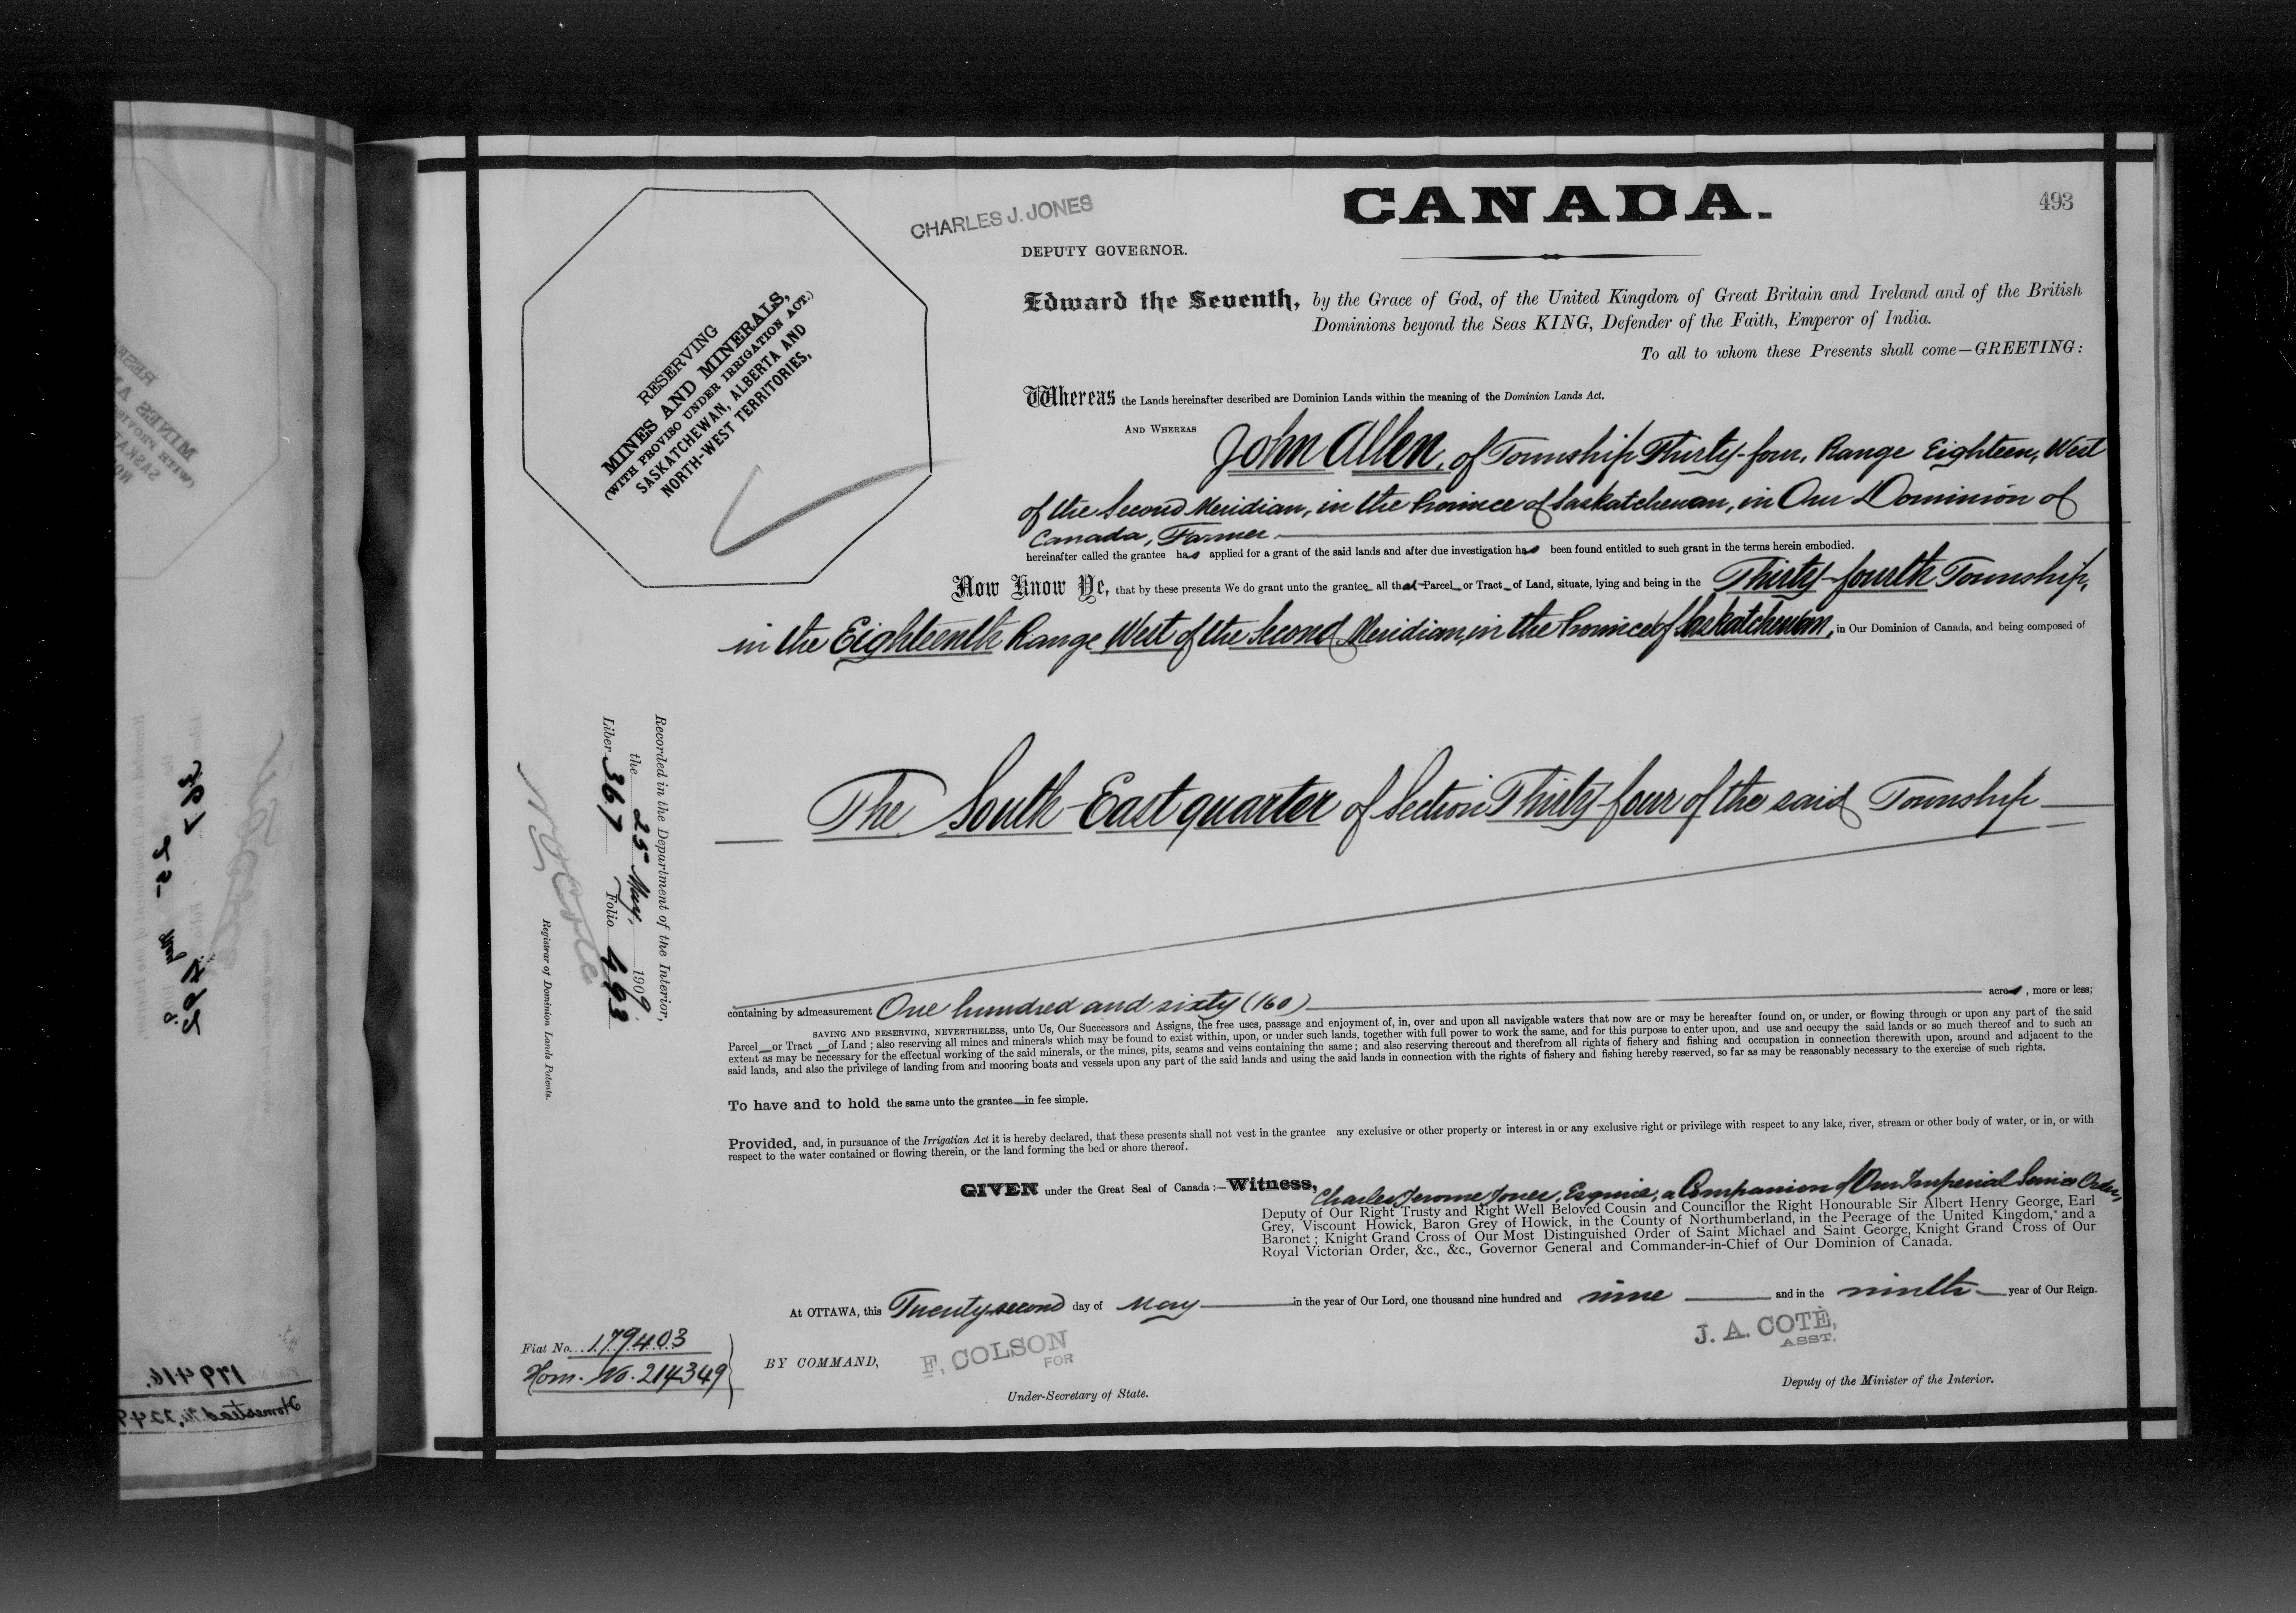 CANADA.
493
CHARLES J. JONES
DEPUTY GOVERNOR.
RESERVING
MINES AND MINERALS,
(WITH PROVISO UNDER IRRIGATION ACT.)
SASKATCHEWAN, ALBERTA AND
NORTH-WEST TERRITORIES,
Edward the Seventh, by the Grace of God, of the United Kingdom of Great Britain and Ireland and of the British
Dominions beyond the Seas KING, Defender of the Faith, Emperor of India.
To all to whom these Presents shall come—GREETING:
Whereas the Lands hereinafter described are Dominion Lands within the meaning of the Dominion Lands Act.
AND WHEREAS John Allen, of Township Thirty-four, Range Eighteen, West
of the Second Meridian, in the Province of Saskatchewan, in Our Dominion of
Canada, Farmer
hereinafter called the grantee has applied for a grant of the said lands and after due investigation has been found entitled to such grant in the terms herein embodied.
Now Know Ye, that by these presents We do grant unto the grantee all that Parcel or Tract of Land, situate, lying and being in the Thirty-fourth Township,
in the Eighteenth Range West of the Second Meridian, in the Province of Saskatchewan, in Our Dominion of Canada, and being composed of
The South-East quarter of Section Thirty-four of the said Township
containing by admeasurement One hundred and sixty (160) acres, more or less;
SAVING AND RESERVING, NEVERTHELESS, unto Us, Our Successors and Assigns, the free uses, passage and enjoyment of, in, over and upon all navigable waters that now are or may be hereafter found on, or under, or flowing through or upon any part of the said
Parcel or Tract of Land; also reserving all mines and minerals which may be found to exist within, upon, or under such lands, together with full power to work the same, and for this purpose to enter upon, and use and occupy the said lands or so much thereof and to such an
extent as may be necessary for the effectual working of the said minerals, or the mines, pits, seams and veins containing the same; and also reserving thereout and therefrom all rights of fishery and fishing and occupation in connection therewith upon, around and adjacent to the
said lands, and also the privilege of landing from and mooring boats and vessels upon any part of the said lands and using the said lands in connection with the rights of fishery and fishing hereby reserved, so far as may be reasonably necessary to the exercise of such rights.
To have and to hold the same unto the grantee in fee simple.
Provided, and, in pursuance of the Irrigatian Act it is hereby declared, that these presents shall not vest in the grantee any exclusive or other property or interest in or any exclusive right or privilege with respect to any lake, river, stream or other body of water, or in, or with
respect to the water contained or flowing therein, or the land forming the bed or shore thereof.
GIVEN under the Great Seal of Canada:—Witness, Charles Jerome Jones, Esquire, a Companion of Our Imperial Service Order,
Deputy of Our Right Trusty and Right Well Beloved Cousin and Councillor the Right Honourable Sir Albert Henry George, Earl
Grey, Viscount Howick, Baron Grey of Howick, in the County of Northumberland, in the Peerage of the United Kingdom, and a
Baronet; Knight Grand Cross of Our Most Distinguished Order of Saint Michael and Saint George, Knight Grand Cross of Our
Royal Victorian Order, &c., &c., Governor General and Commander-in-Chief of Our Dominion of Canada.
At OTTAWA, this Twenty-second day of May in the year of Our Lord, one thousand nine hundred and nine and in the ninth year of Our Reign.
Fiat No. 179403
Hom. No. 214349
BY COMMAND,
F. COLSON
FOR
Under-Secretary of State.
J. A. COTÉ,
ASST.
Deputy of the Minister of the Interior.
Recorded in the Department of the Interior,
the 25 May, 1909
Liber 367 Folio 493
Registrar of Dominion Lands Patents.